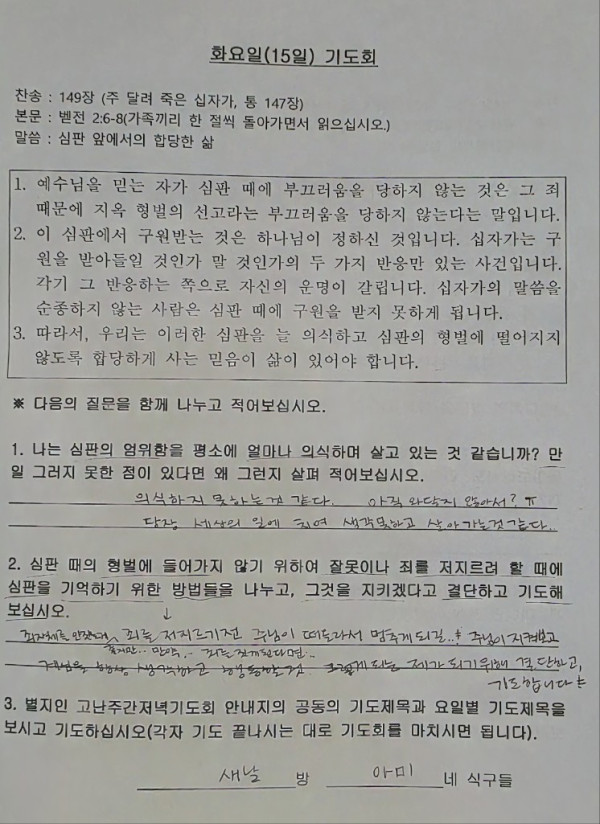 화요일(15일) 기도회
찬송 : 149장 (주 달려 죽은 십자가, 통 147장)
본문 : 벧전 2:6-8(가족끼리 한 절씩 돌아가면서 읽으십시오.)
말씀 : 심판 앞에서의 합당한 삶
1. 예수님을 믿는 자가 심판 때에 부끄러움을 당하지 않는 것은 그 죄
때문에 지옥 형벌의 선고라는 부끄러움을 당하지 않는다는 말입니다.
2. 이 심판에서 구원받는 것은 하나님이 정하신 것입니다. 십자가는 구
원을 받아들일 것인가 말 것인가의 두 가지 반응만 있는 사건입니다.
각기 그 반응하는 쪽으로 자신의 운명이 갈립니다. 십자가의 말씀을
순종하지 않는 사람은 심판 때에 구원을 받지 못하게 됩니다.
3. 따라서, 우리는 이러한 심판을 늘 의식하고 심판의 형벌에 떨어지지
않도록 합당하게 사는 믿음이 삶이 있어야 합니다.
※ 다음의 질문을 함께 나누고 적어보십시오.
1. 나는 심판의 엄위함을 평소에 얼마나 의식하며 살고 있는 것 같습니까? 만
일 그러지 못한 점이 있다면 왜 그런지 살펴 적어보십시오.
의식하지 못하는것 같다. 아직 와닿지 않아서? ㅠ
당장 세상의 일에 치여 생각못하고 살아가는것같다..
2. 심판 때의 형벌에 들어가지 않기 위하여 잘못이나 죄를 저지르려 할 때에
심판을 기억하기 위한 방법들을 나누고, 그것을 지키겠다고 결단하고 기도해
보십시오.
죄를 저지르기전 주님이 떠올라서 멈추게 되길.. 주님이 지켜보고
항상 생각하고 행동할것 되는 제가 되기위해 결단하고,
기도합니다
3. 별지인 고난주간저녁기도회 안내지의 공동의 기도제목과 요일별 기도제목을
보시고 기도하십시오(각자 기도 끝나시는 대로 기도회를 마치시면 됩니다).
새날 방 아미 네 식구들